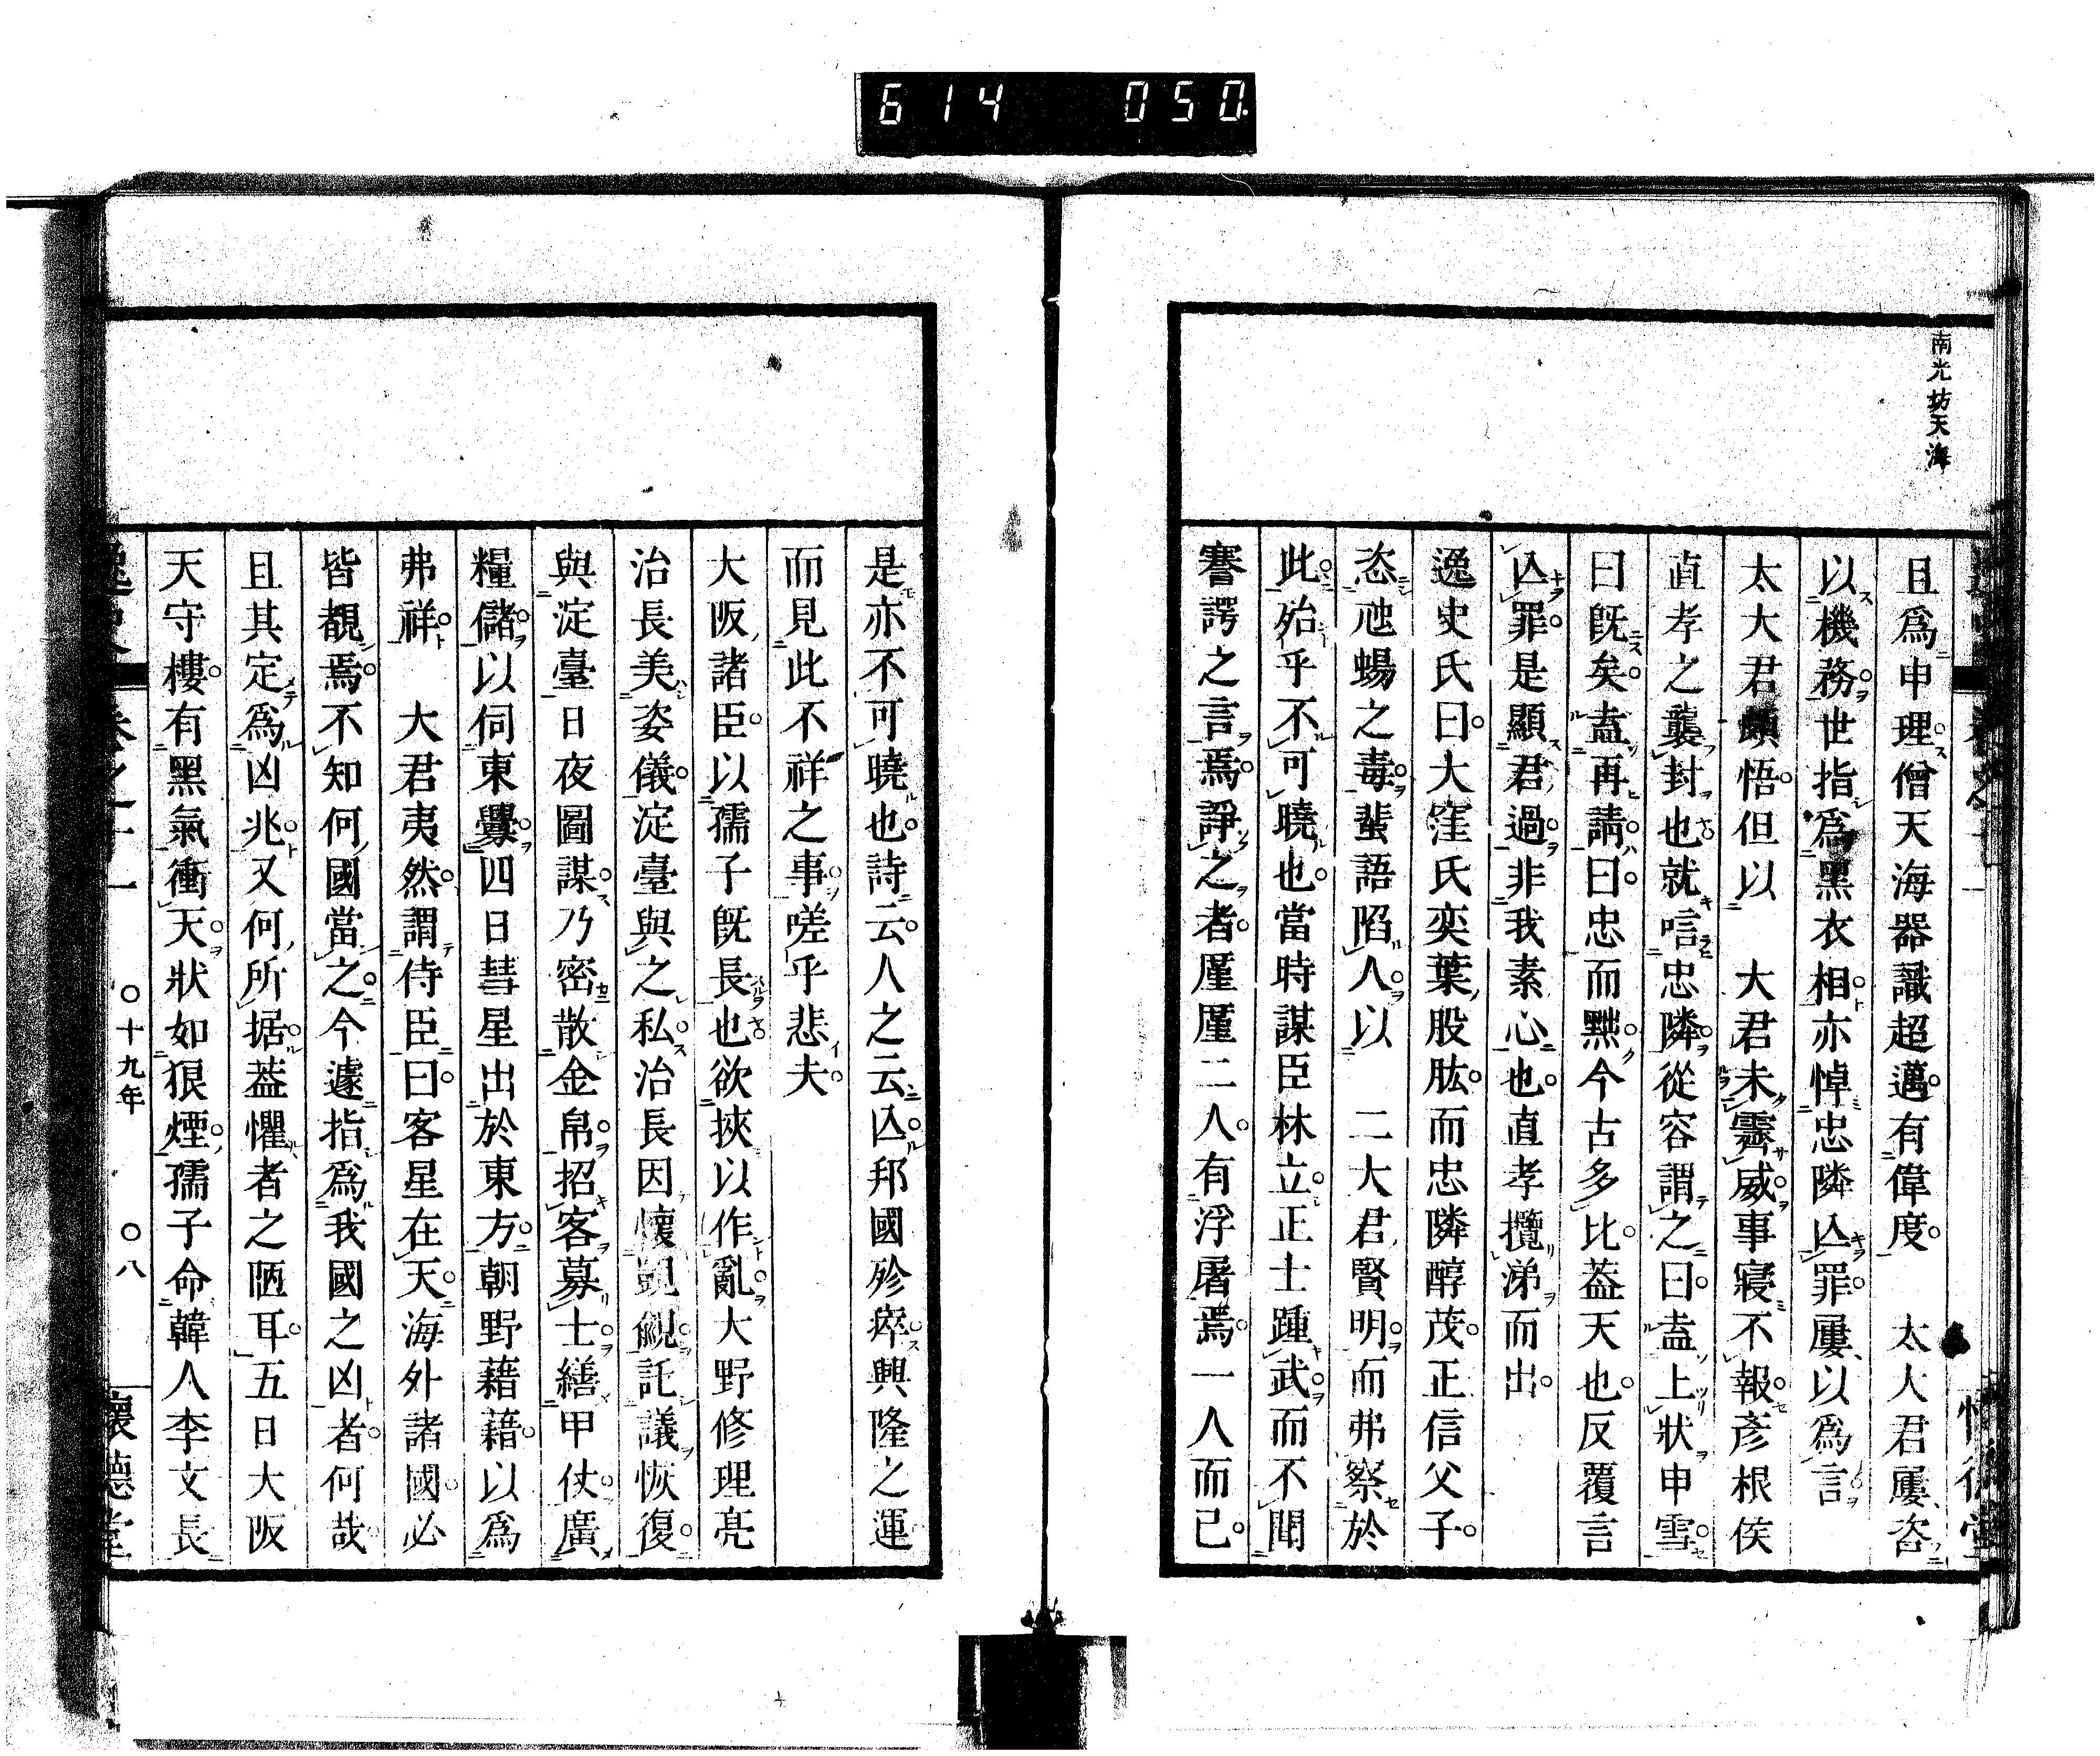 614 050
南光坊天海
且爲申理僧天海器識超邁有偉度 太大君屢咨
以機務世指爲黑衣相亦悼忠隣亾罪屢以爲言
太大君頗悟但以 大君未霽威事寢不報彥根侯
直孝之襲封也就唁忠隣從容謂之曰盍上狀申雪
曰既矣盍再請曰忠而黙今古多比葢天也反覆言
亾罪是顯君過非我素心也直孝攬涕而出
逸史氏曰大窪氏奕葉股肱而忠隣醇茂正信父子
恣虺蜴之毒蜚語陷人以 二大君賢明而弗察於
此殆乎不可曉也當時謀臣林立正士踵武而不聞
謇諤之言焉諍之者厪厪二人有浮屠焉一人而已
是亦不可曉也詩云人之云亾邦國殄瘁興隆之運
而見此不祥之事嗟乎悲夫
大阪諸臣以孺子既長也欲挾以作亂大野修理亮
治長美姿儀淀臺與之私治長因懷覬覦託議恢復
與淀臺日夜圖謀乃密散金帛招客募士繕甲仗廣
糧儲以伺東釁四日彗星出於東方朝野藉藉以爲
弗祥 大君夷然謂侍臣曰客星在天海外諸國必
皆覩焉不知何國當之今遽指爲我國之凶者何哉
且其定爲凶兆又何所据葢懼者之陋耳五日大阪
天守樓有黑氣衝天狀如狼煙孺子命韓人李文長
逸史 卷之十一 ○十九年 ○八 懷德堂